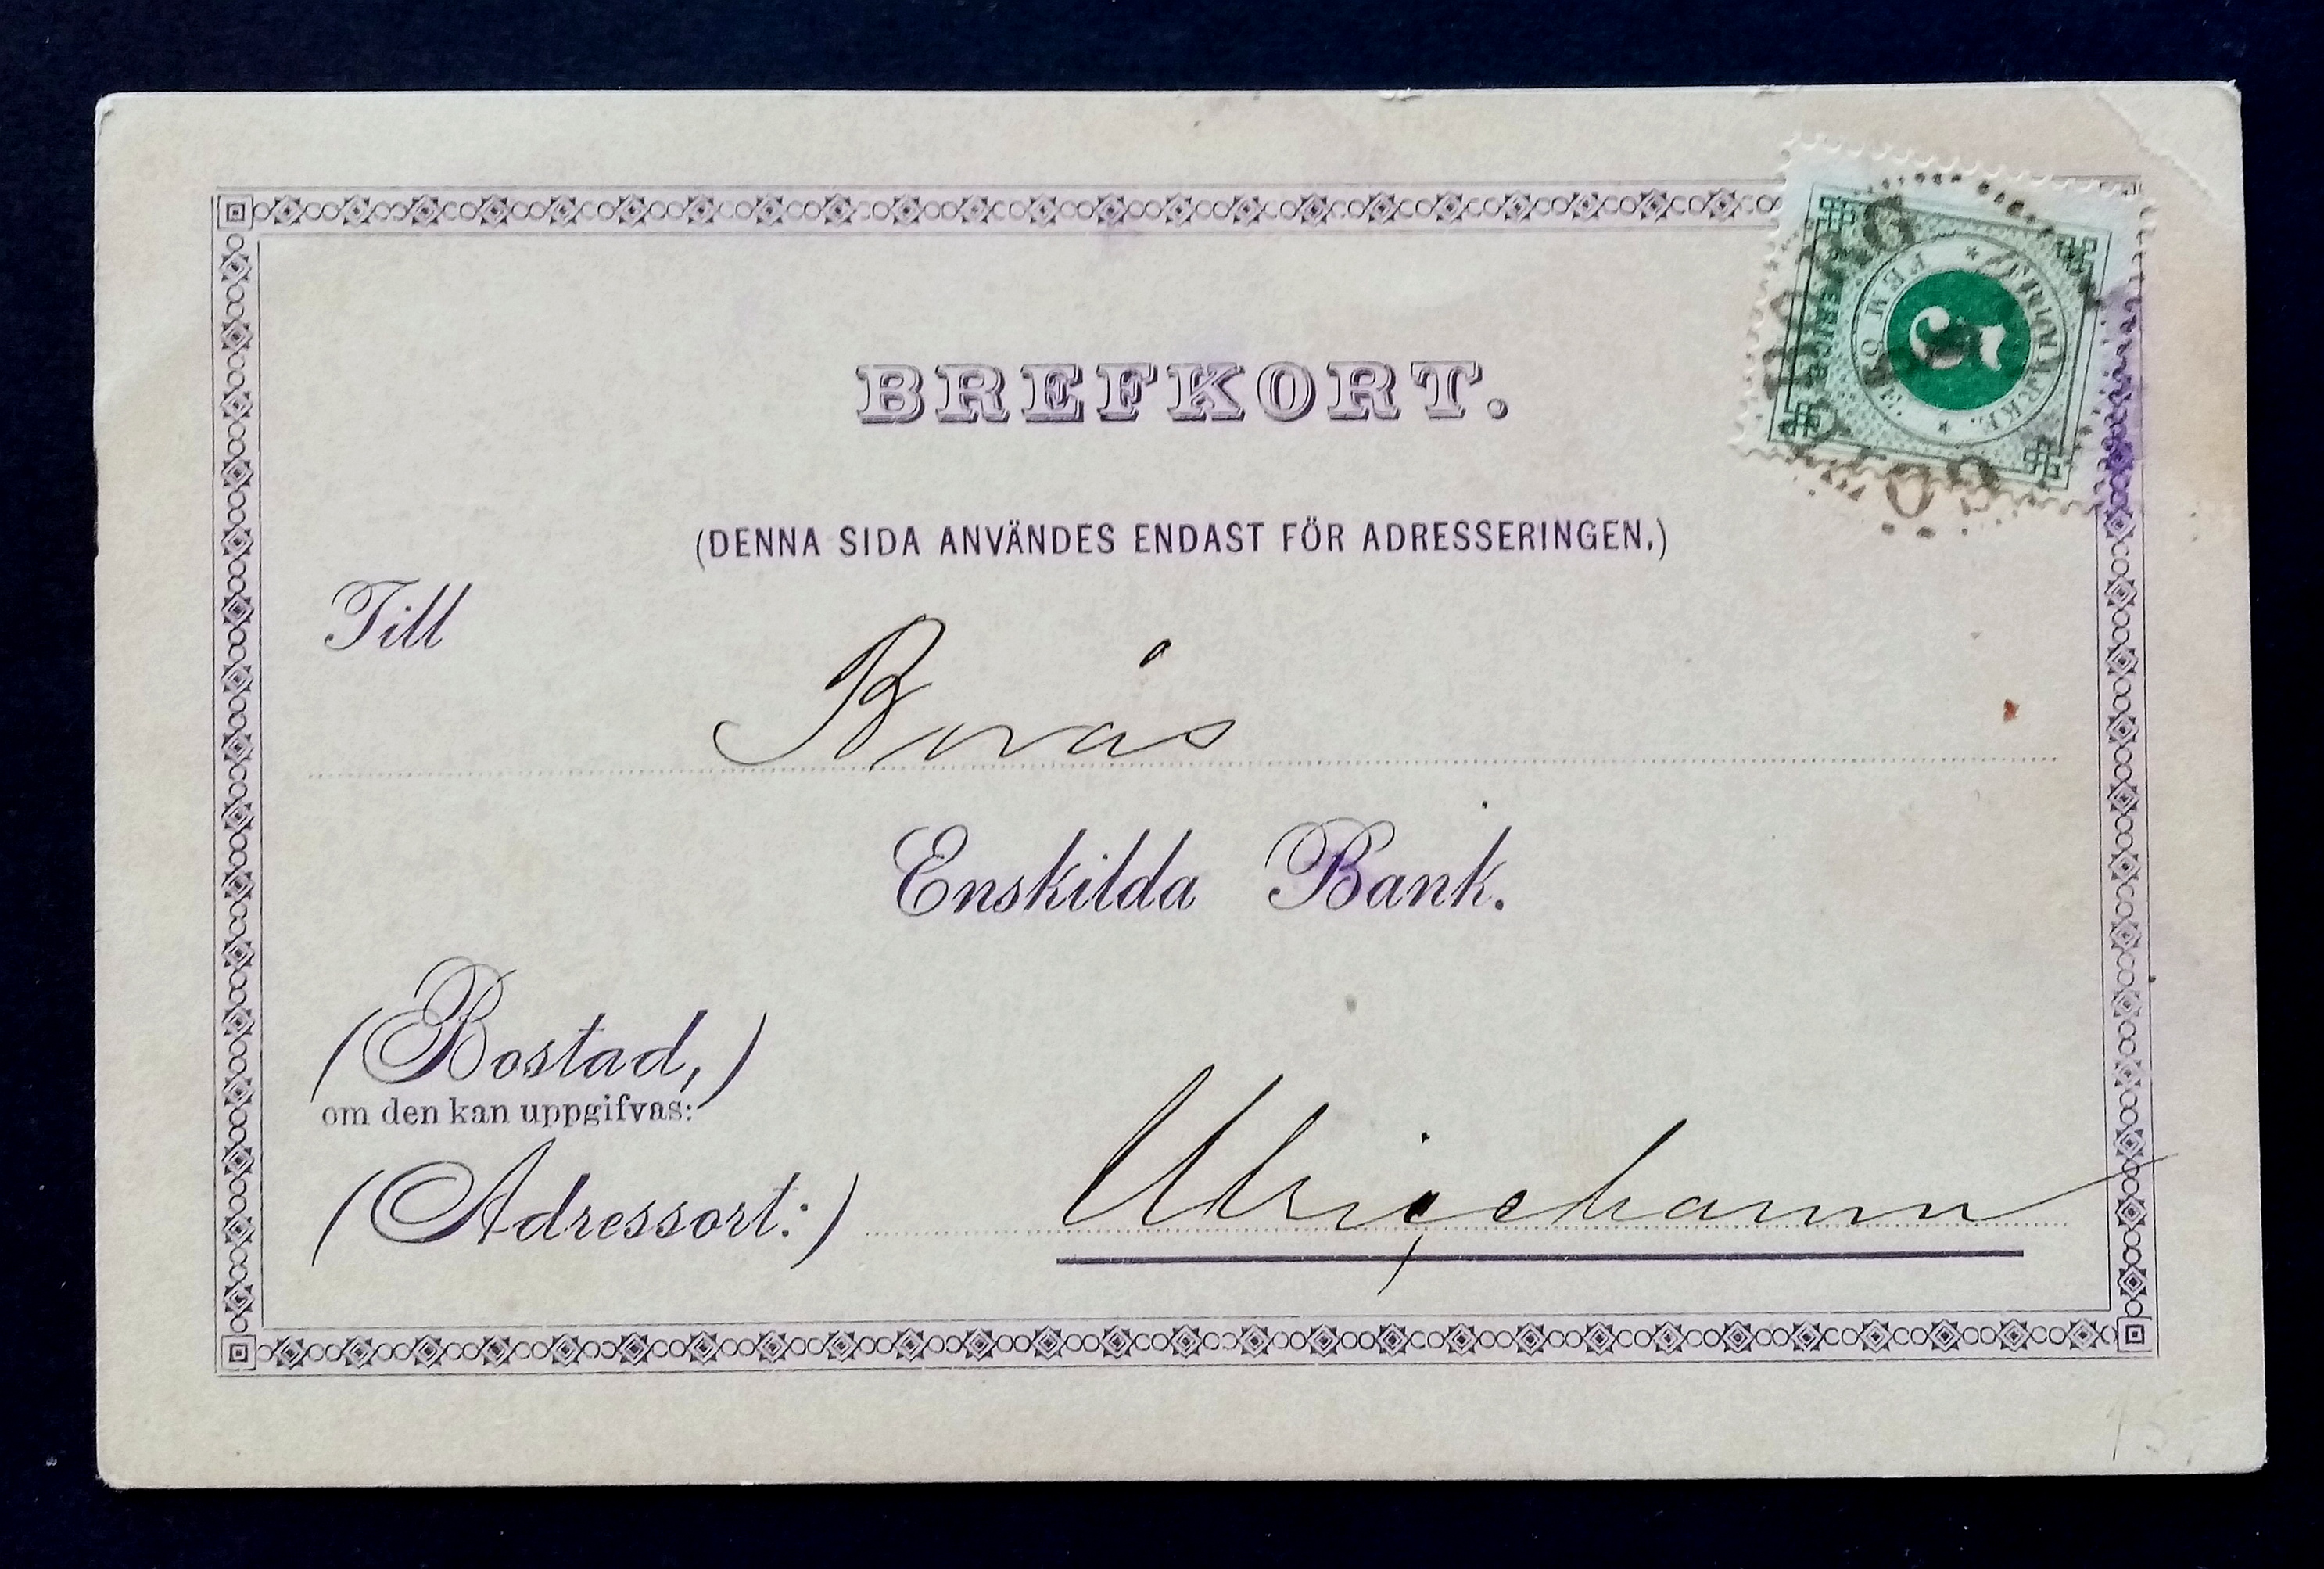 BREFKORT.
5
FEM ÖRE
FRIMÄRKE
SVERIGE
(DENNA SIDA ANVÄNDES ENDAST FÖR ADRESSERINGEN.)
Till
Borås
Enskilda Bank.
(Bostad,)
om den kan uppgifvas:
(Adressort:)
Ulricehamn
15